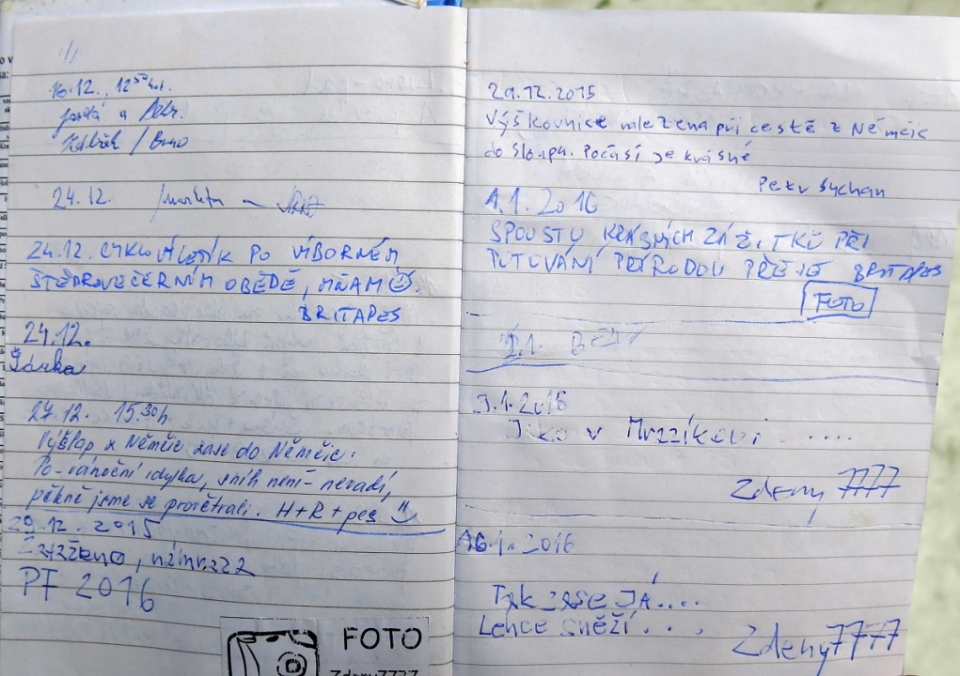 16.12. 12⁵⁰ hod.
a Petr
/ Brno
24.12.
24.12. PO VÍBORNÉM
ŠTĚDROVEČERNÍM OBĚDĚ, MŇAM
BRITAPES
24.12.
Šárka
27.12. 15.30h
Výšlap z Němčic zase do Němčic.
Po-vánoční idylka, sníh není - nevadí,
pěkně jsme se provětrali. H+R+pes
29.12.2015
Zataženo, námraza
PF 2016
FOTO
Zdeny7777
29.12.2015
Výškovnice nalezena při cestě z Němčic
do Sloupu. Počasí je krásné
Petr Suchan
1.1.2016
SPOUSTU KRÁSNÝCH ZÁŽITKŮ PŘI
PUTOVÁNÍ PŘÍRODOU PŘEJE BRITAPES
FOTO
1.1.
3.1.2016
Jako v Mrazíkovi ....
Zdeny7777
6.1.2016
Tak zase JÁ....
Lehce sněží....
Zdeny7777